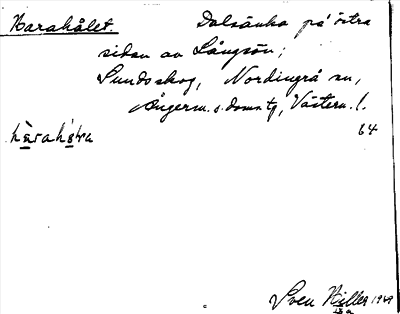 Harahålet. Dalsänka på östra
sidan av Långsön;
Sundsskog, Nordingrå sn,
Ångerm. s. domsg, Västern. l.
64
Sven Hiller 1929